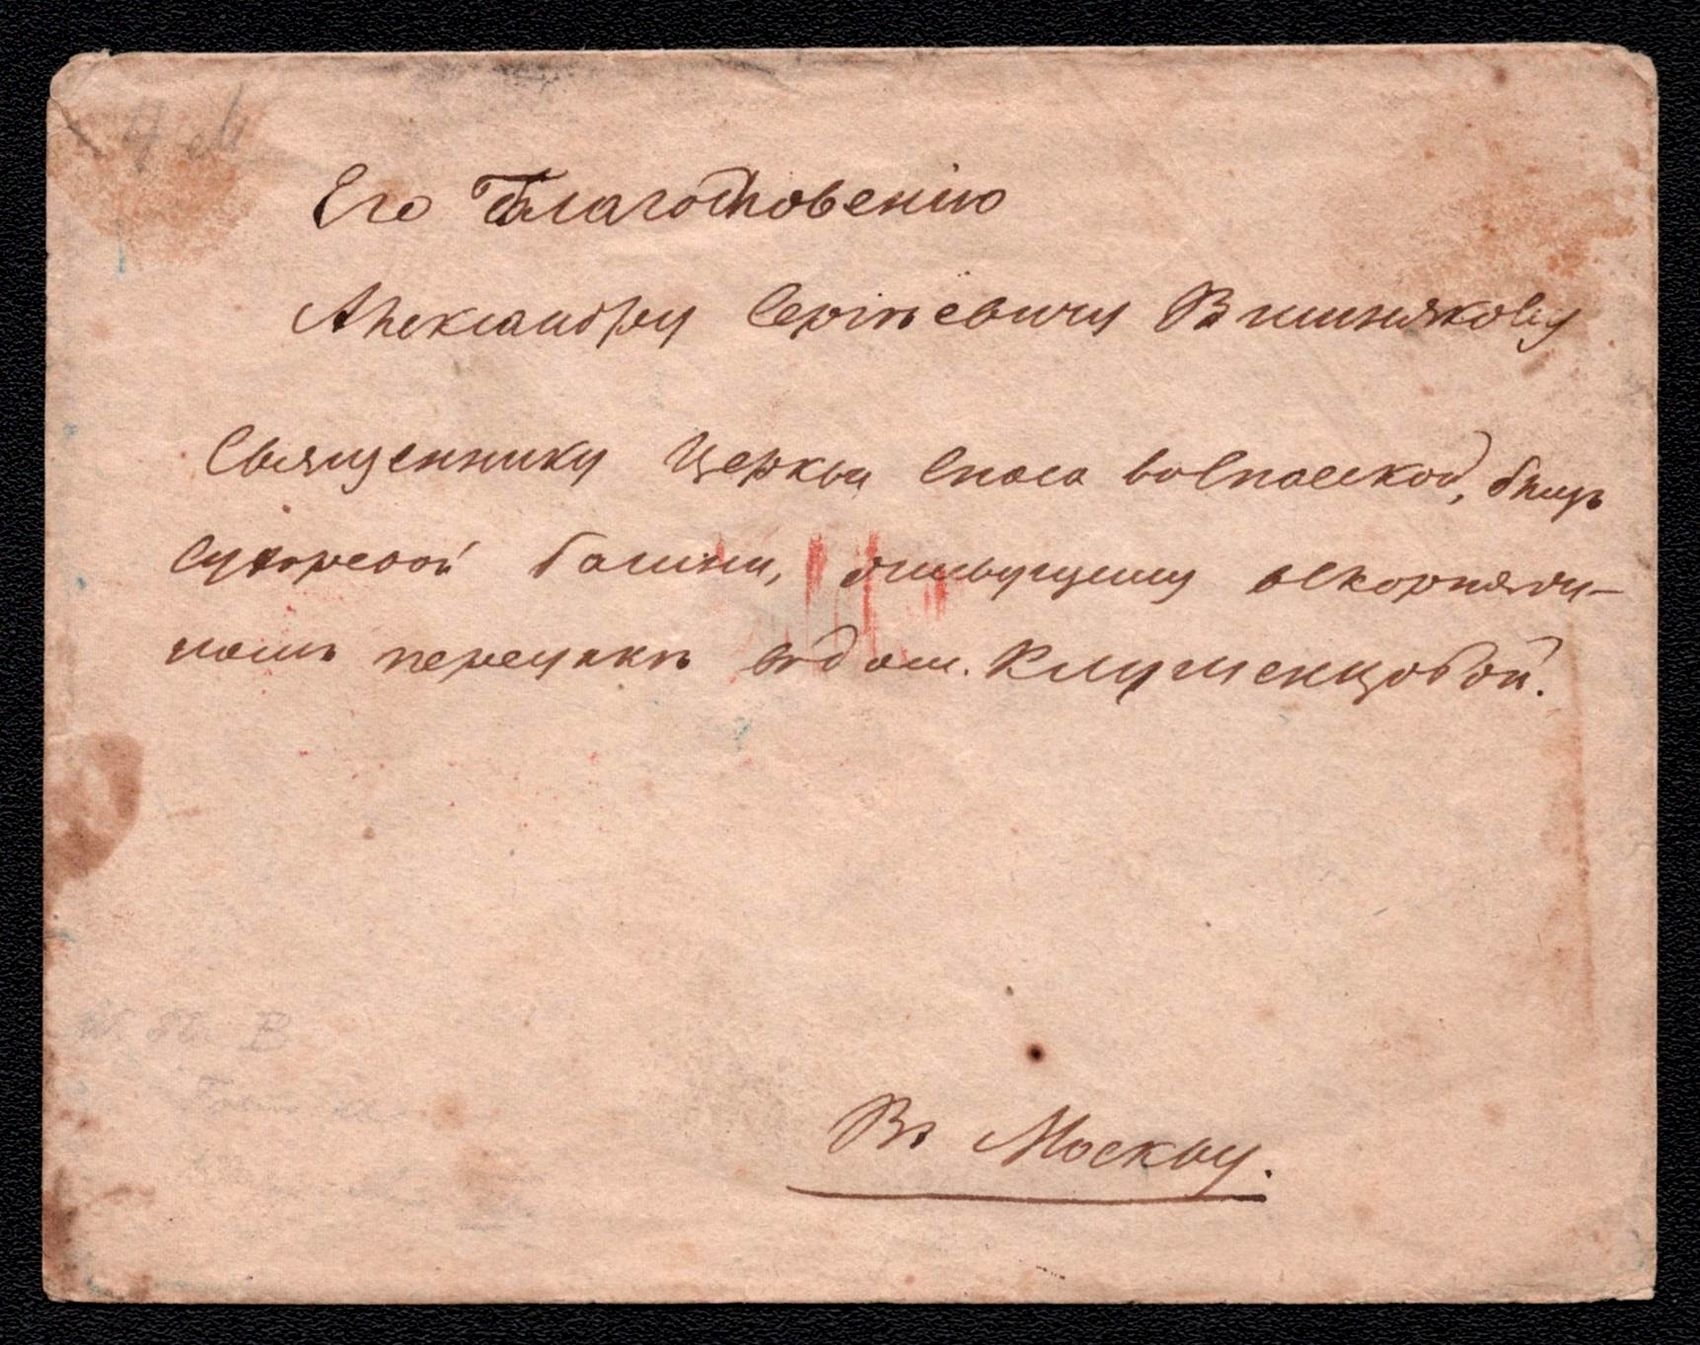 Его Благословению
Александру Сергѣевичу Вишнякову
Священнику Церкви Спаса во Спаской, близъ
Сухаревой башни, живущему в Скорняжи-
номъ переулкѣ в дом.
Въ Москву.